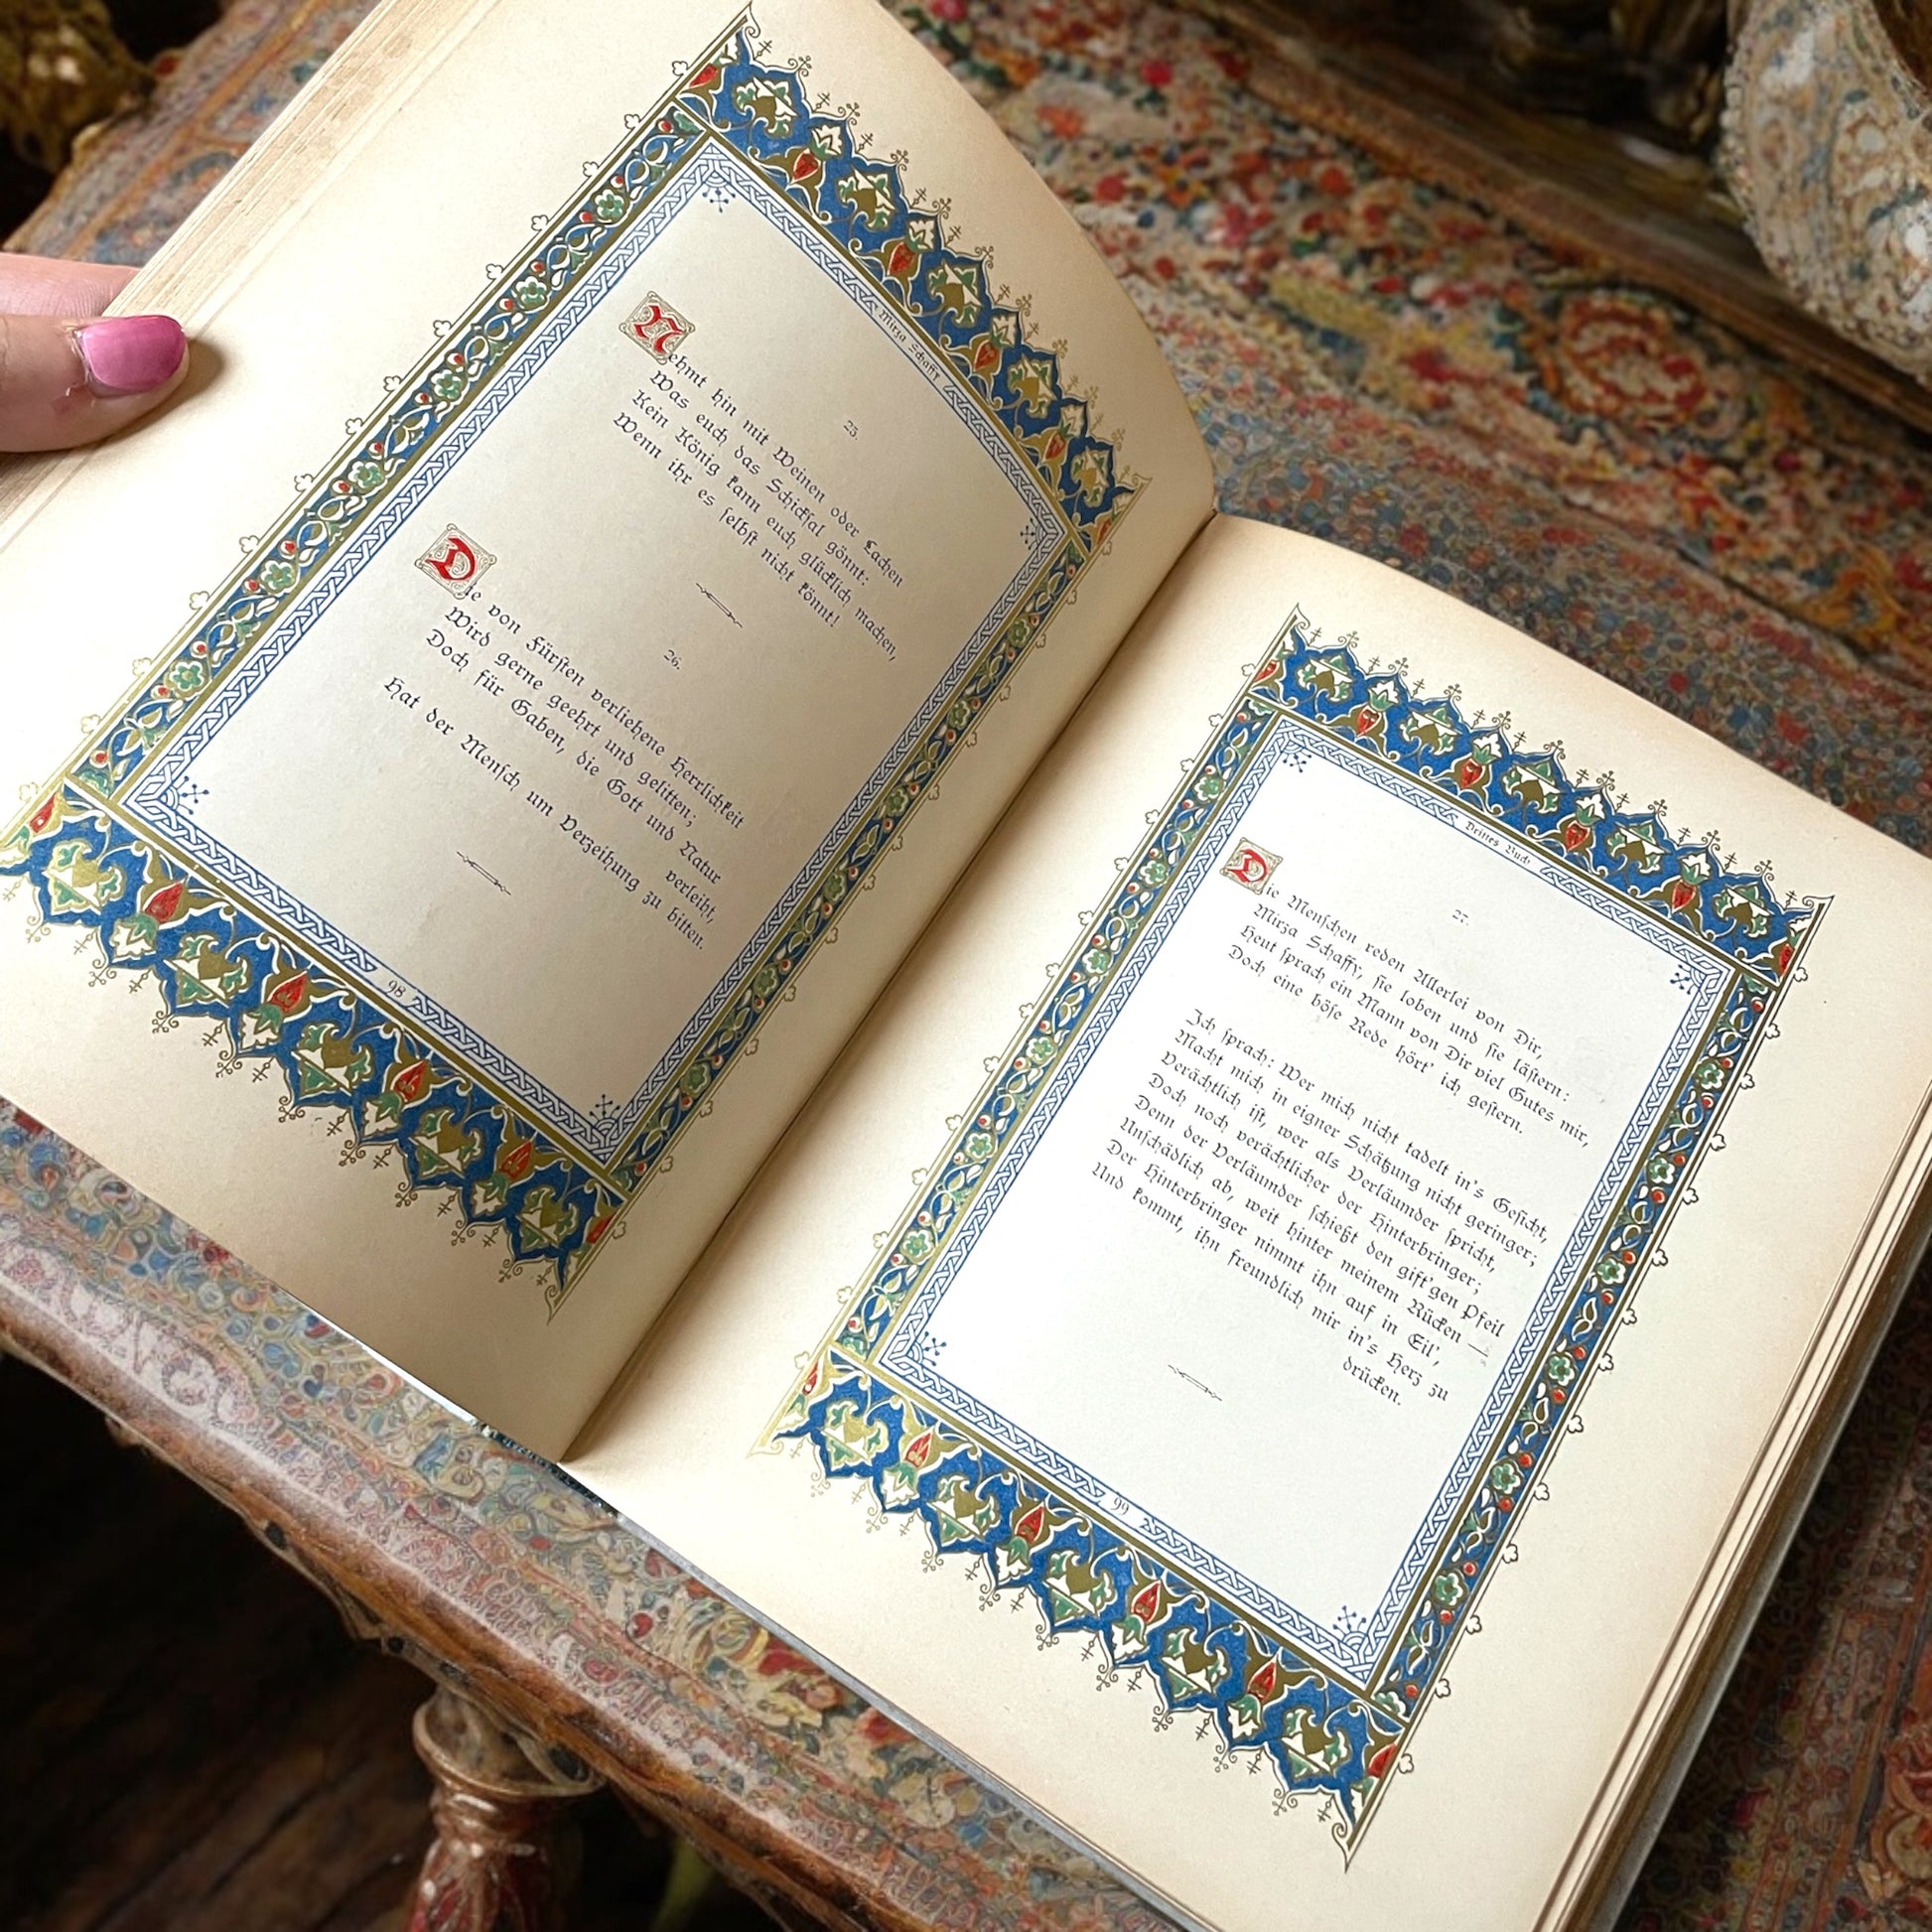 Mirza Schaffy
25.
Nehmt hin mit Weinen oder Lachen
Was euch das Schickſal gönnt:
Kein König kann euch glücklich machen,
Wenn ihr es ſelbſt nicht könnt!
26.
Die von Fürſten verliehene Herrlichkeit
Wird gerne geehrt und gelitten;
Doch für Gaben, die Gott und Natur
verleiht,
Hat der Menſch um Verzeihung zu bitten.
98
Drittes Buch
27.
Die Menſchen reden Allerlei von Dir,
Mirza Schaffy, ſie loben und ſie läſtern:
Heut ſprach ein Mann von Dir viel Gutes mir,
Doch eine böſe Rede hört' ich geſtern.
Ich ſprach: Wer mich nicht tadelt in's Geſicht,
Macht mich in eigner Schätzung nicht geringer;
Verächtlich iſt, wer als Verläumder ſpricht,
Doch noch verächtlicher der Hinterbringer;
Denn der Verläumder ſchießt den gift'gen Pfeil
Unſchädlich ab, weit hinter meinem Rücken —
Der Hinterbringer nimmt ihn auf in Eil',
Und kommt, ihn freundlich mir in's Herz zu
drücken.
99